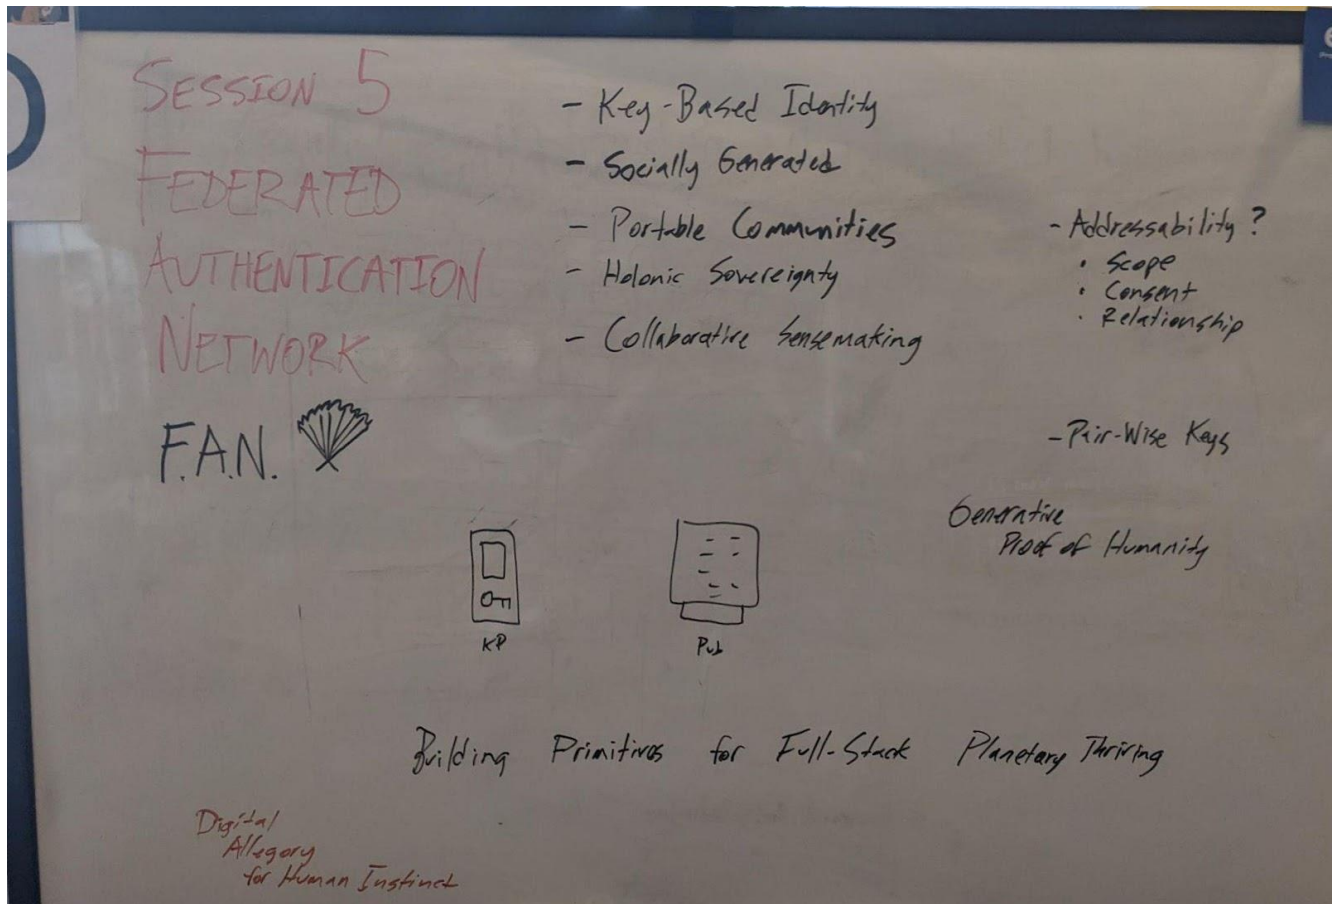 SESSION 5
FEDERATED
AUTHENTICATION
NETWORK
F.A.N.
- Key-Based Identity
- Socially Generated
- Portable Communities
- Holonic Sovereignty
- Collaborative Sensemaking
- Addressability?
• Scope
• Consent
• Relationship
- Pair-Wise Keys
Generative
Proof of Humanity
KP
Pub
Building Primitives for Full-Stack Planetary Thriving
Digital
Allegory
for Human Instinct